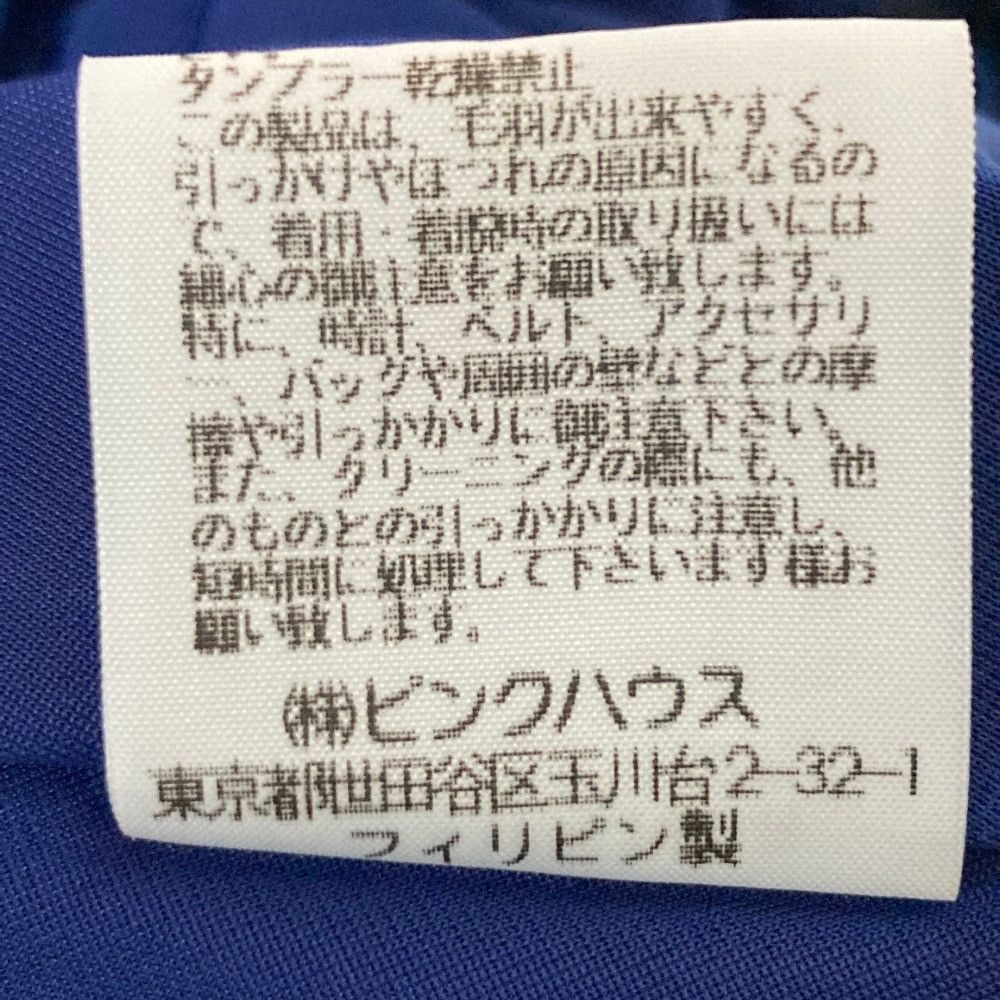 タンブラー乾燥禁止
この製品は、毛羽が出来やすく、
引っかけやほつれの原因になるの
で、着用・着脱時の取り扱いには
細心の御注意をお願い致します。
特に、時計、ベルト、アクセサリ
ー、バッグや周囲の壁などとの摩
擦や引っかかりに御注意下さい。
また、クリーニングの際にも、他
のものとの引っかかりに注意し、
短時間に処理して下さいます様お
願い致します。
㈱ピンクハウス
東京都世田谷区玉川台2-32-1
フィリピン製